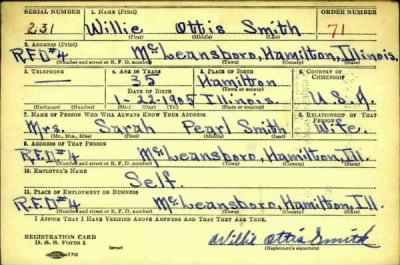 SERIAL NUMBER 1. NAME (Print) ORDER NUMBER
231 Willie Ottis Smith 71
(First) (Middle) (Last)
2. ADDRESS (Print)
R.F.D#4 McLeansboro, Hamilton, Illinois.
(Number and street or R. F. D. number) (Town) (County) (State)
3. TELEPHONE 4. AGE IN YEARS 5. PLACE OF BIRTH 6. COUNTRY OF CITIZENSHIP
35 Hamilton
DATE OF BIRTH (Town or county)
1905 Illinois. U.S.A.
(Exchange) (Number) (Mo.) (Day) (Yr.) (State or country)
7. NAME OF PERSON WHO WILL ALWAYS KNOW YOUR ADDRESS 8. RELATIONSHIP OF THAT PERSON
Mrs. Sarah Pearl Smith Wife.
(Mr., Mrs., Miss) (First) (Middle) (Last)
9. ADDRESS OF THAT PERSON
R.F.D#4 McLeansboro, Hamilton, Ill.
(Number and street or R. F. D. number) (Town) (County) (State)
10. EMPLOYER'S NAME
Self.
11. PLACE OF EMPLOYMENT OR BUSINESS
R.F.D#4 McLeansboro, Hamilton, Ill.
(Number and street or R. F. D. number) (Town) (County) (State)
I AFFIRM THAT I HAVE VERIFIED ABOVE ANSWERS AND THAT THEY ARE TRUE.
REGISTRATION CARD
D. S. S. Form 1 Willie Ottis Smith
(Registrant's signature)